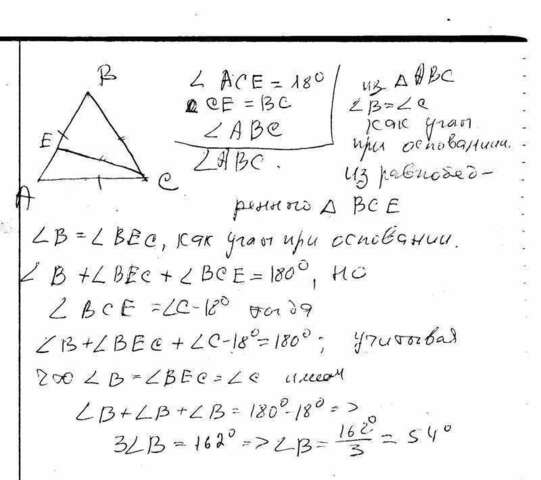 B
E
A
C
∠ ACE = 18°
CE = BC
∠ ABC
∠ ABC.
из △ ABC
∠B = ∠C
как углы
при основании.
Из равнобед-
ренного △ BCE
∠B = ∠BEC, как углы при основании.
∠B + ∠BEC + ∠BCE = 180°, но
∠BCE = ∠C-18° тогда
∠B + ∠BEC + ∠C-18° = 180°; учитывая
что ∠B = ∠BEC = ∠C имеем
∠B + ∠B + ∠B = 180°-18° =>
3∠B = 162° => ∠B = 162°/3 = 54°